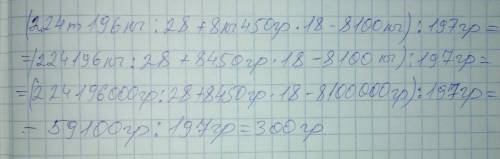 (224т196кг:28+8кг450гр·18-8100кг):197гр=
=(224196кг:28+8450гр·18-8100кг):197гр=
=(224196000гр:28+8450гр·18-8100000гр):197гр=
=59100гр:197гр=300гр